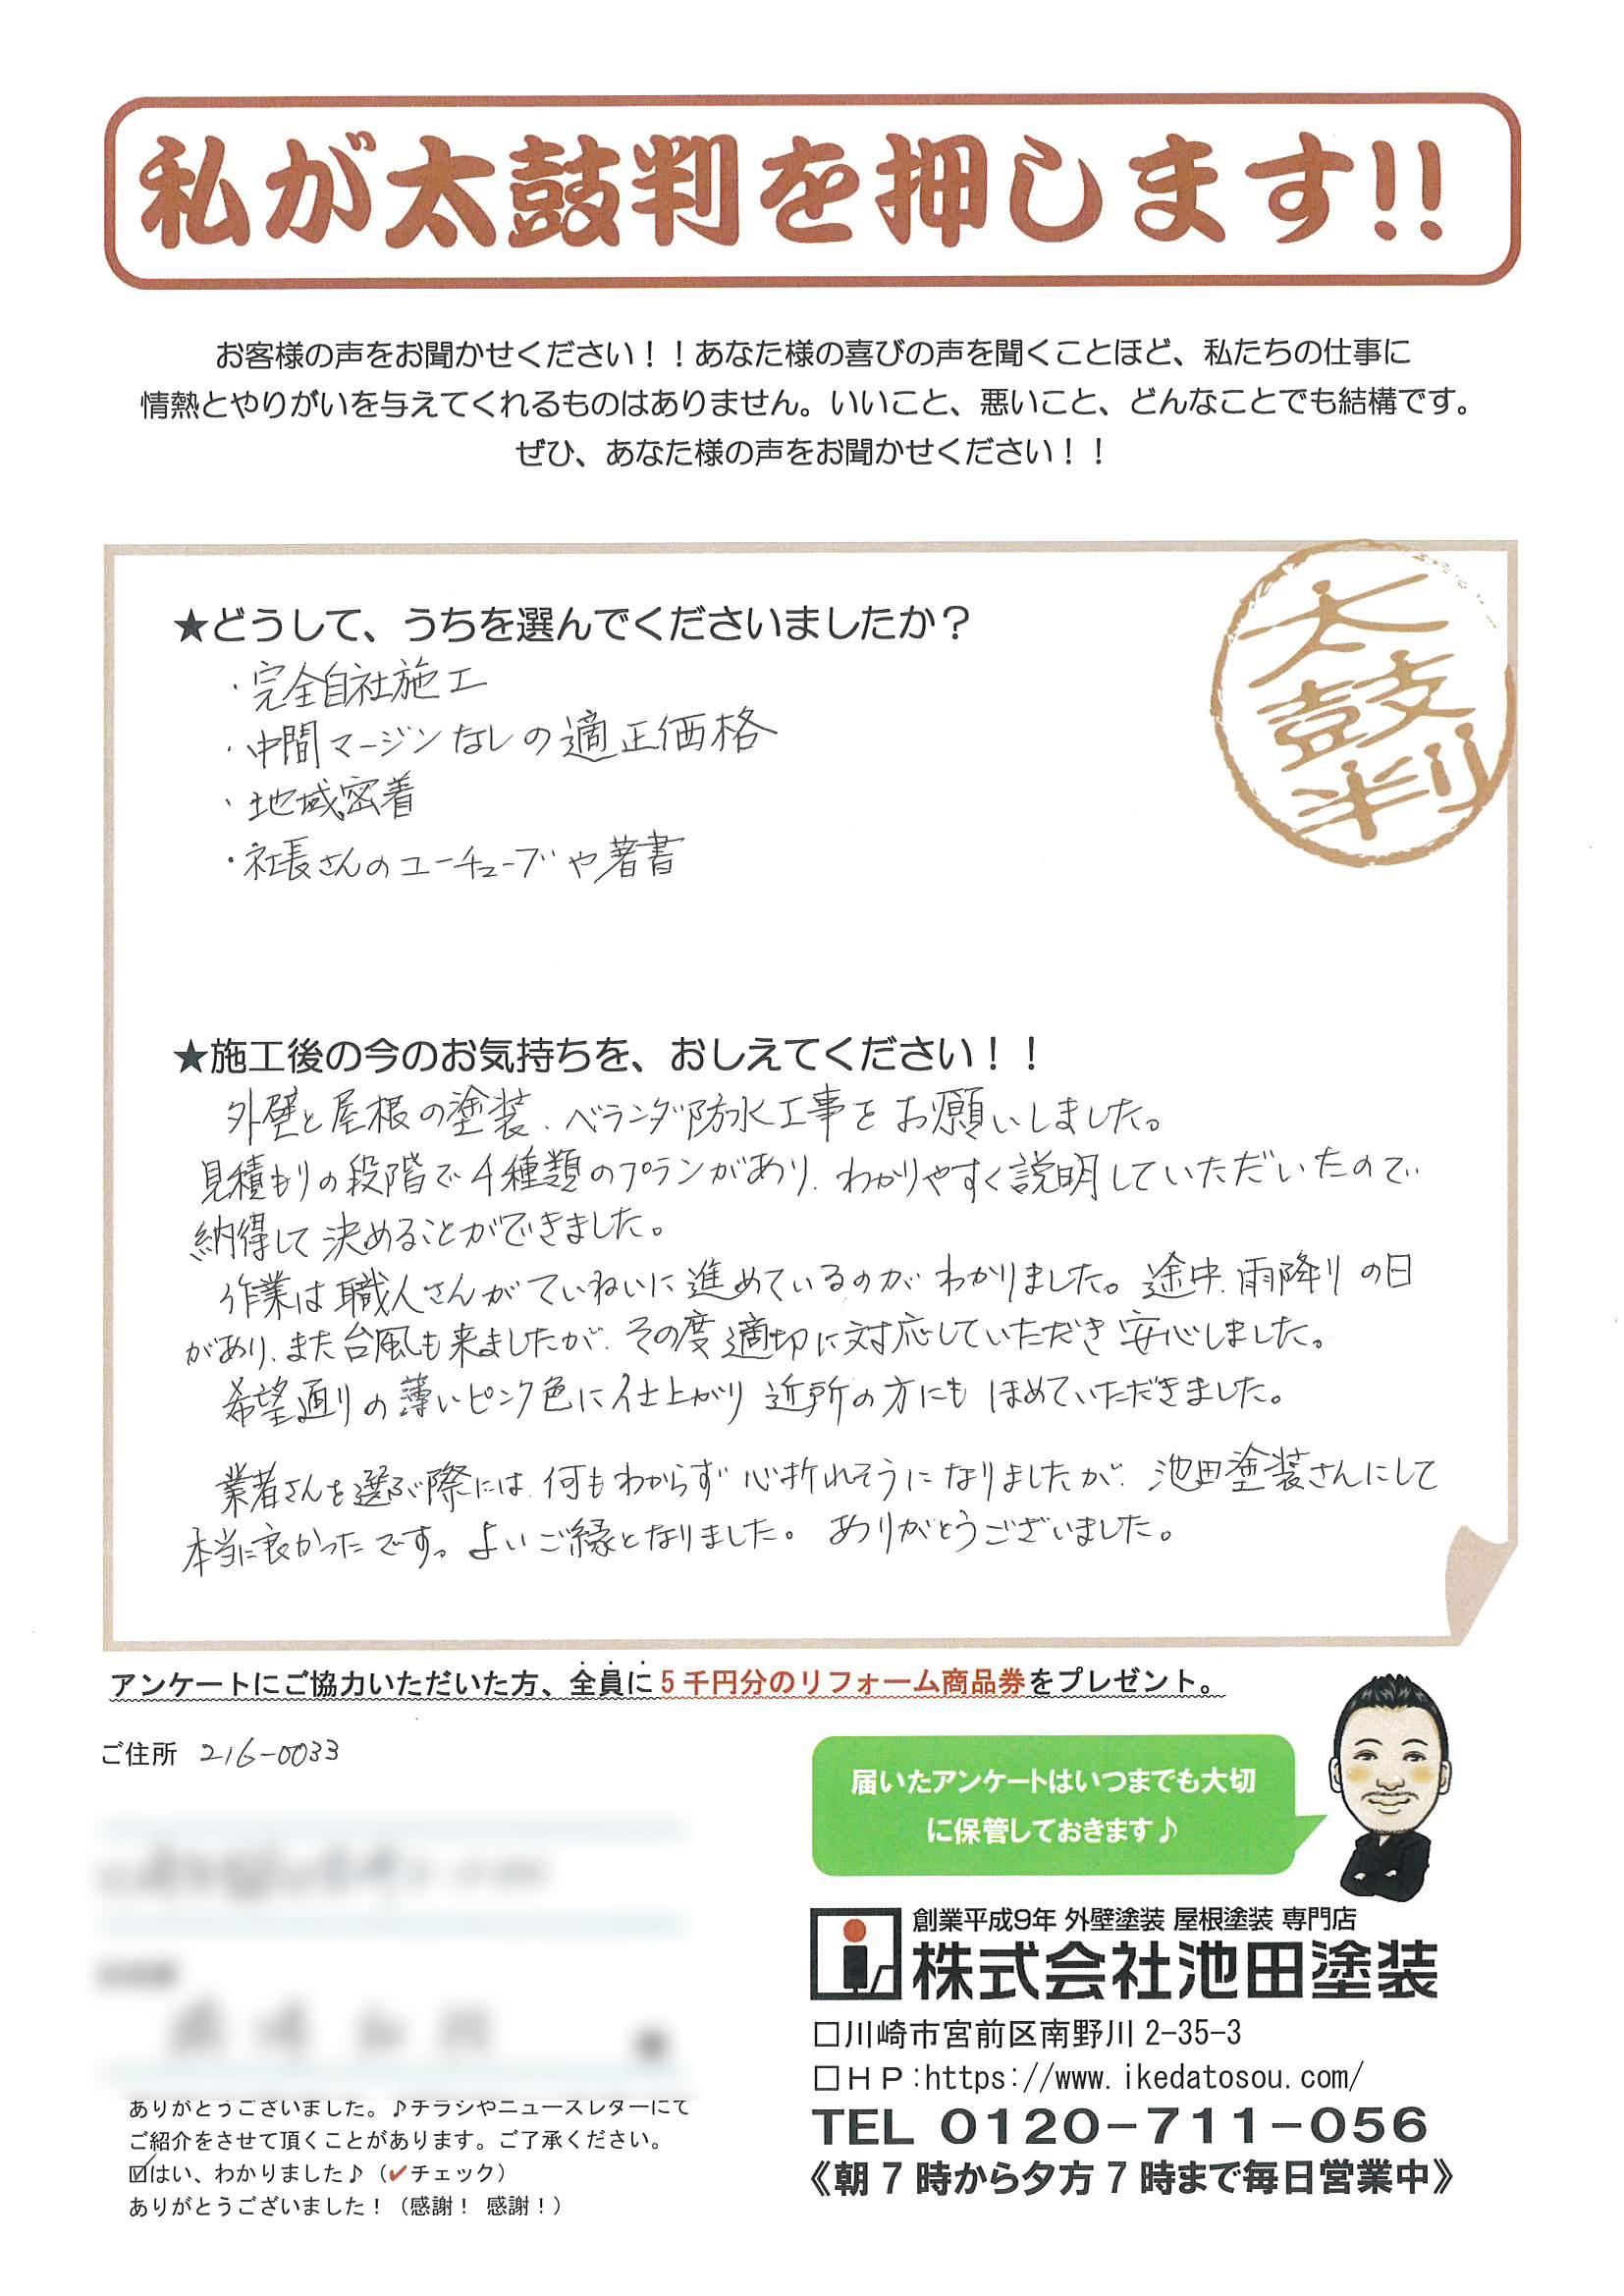 私が太鼓判を押します!!
お客様の声をお聞かせください！！あなた様の喜びの声を聞くことほど、私たちの仕事に
情熱とやりがいを与えてくれるものはありません。いいこと、悪いこと、どんなことでも結構です。
ぜひ、あなた様の声をお聞かせください！！
太
鼓
判
★どうして、うちを選んでくださいましたか？
・完全自社施工
・中間マージンなしの適正価格
・地域密着
・社長さんのユーチューブや著書
★施工後の今のお気持ちを、おしえてください！！
外壁と屋根の塗装、ベランダ防水工事をお願いしました。
見積もりの段階で4種類のプランがあり、わかりやすく説明していただいたので
納得して決めることができました。
作業は職人さんがていねいに進めているのがわかりました。途中、雨降りの日
があり、また台風も来ましたが、その度適切に対応していただき安心しました。
希望通りの薄いピンク色に仕上がり近所の方にもほめていただきました。
業者さんを選ぶ際には、何もわからず心折れそうになりましたが、池田塗装さんにして
本当に良かったです。よいご縁となりました。ありがとうございました。
アンケートにご協力いただいた方、全員に5千円分のリフォーム商品券をプレゼント。
ご住所 216-0033
届いたアンケートはいつまでも大切
に保管しておきます♪
創業平成9年 外壁塗装 屋根塗装 専門店
株式会社池田塗装
□川崎市宮前区南野川 2-35-3
□HP:https://www.ikedatosou.com/
TEL 0120-711-056
《朝7時から夕方7時まで毎日営業中》
ありがとうございました。♪チラシやニュースレターにて
ご紹介をさせて頂くことがあります。ご了承ください。
☑はい、わかりました♪（✔チェック）
ありがとうございました！（感謝！ 感謝！）